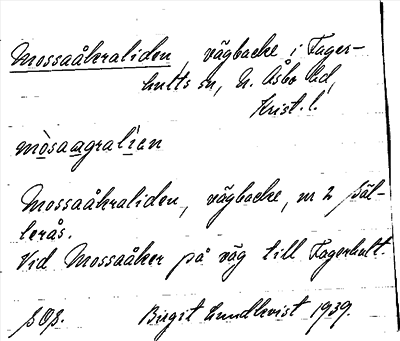 Mossaåkraliden, vägbacke i Fager-
hults sn, N. Åsbo hd,
Krist. l.
mòsaagralíen
Mossaåkraliden, vägbacke, nr 2 Päl-
lerås.
Vid Mossaåker på väg till Fagerhult.
Birgit Lundkvist 1939.